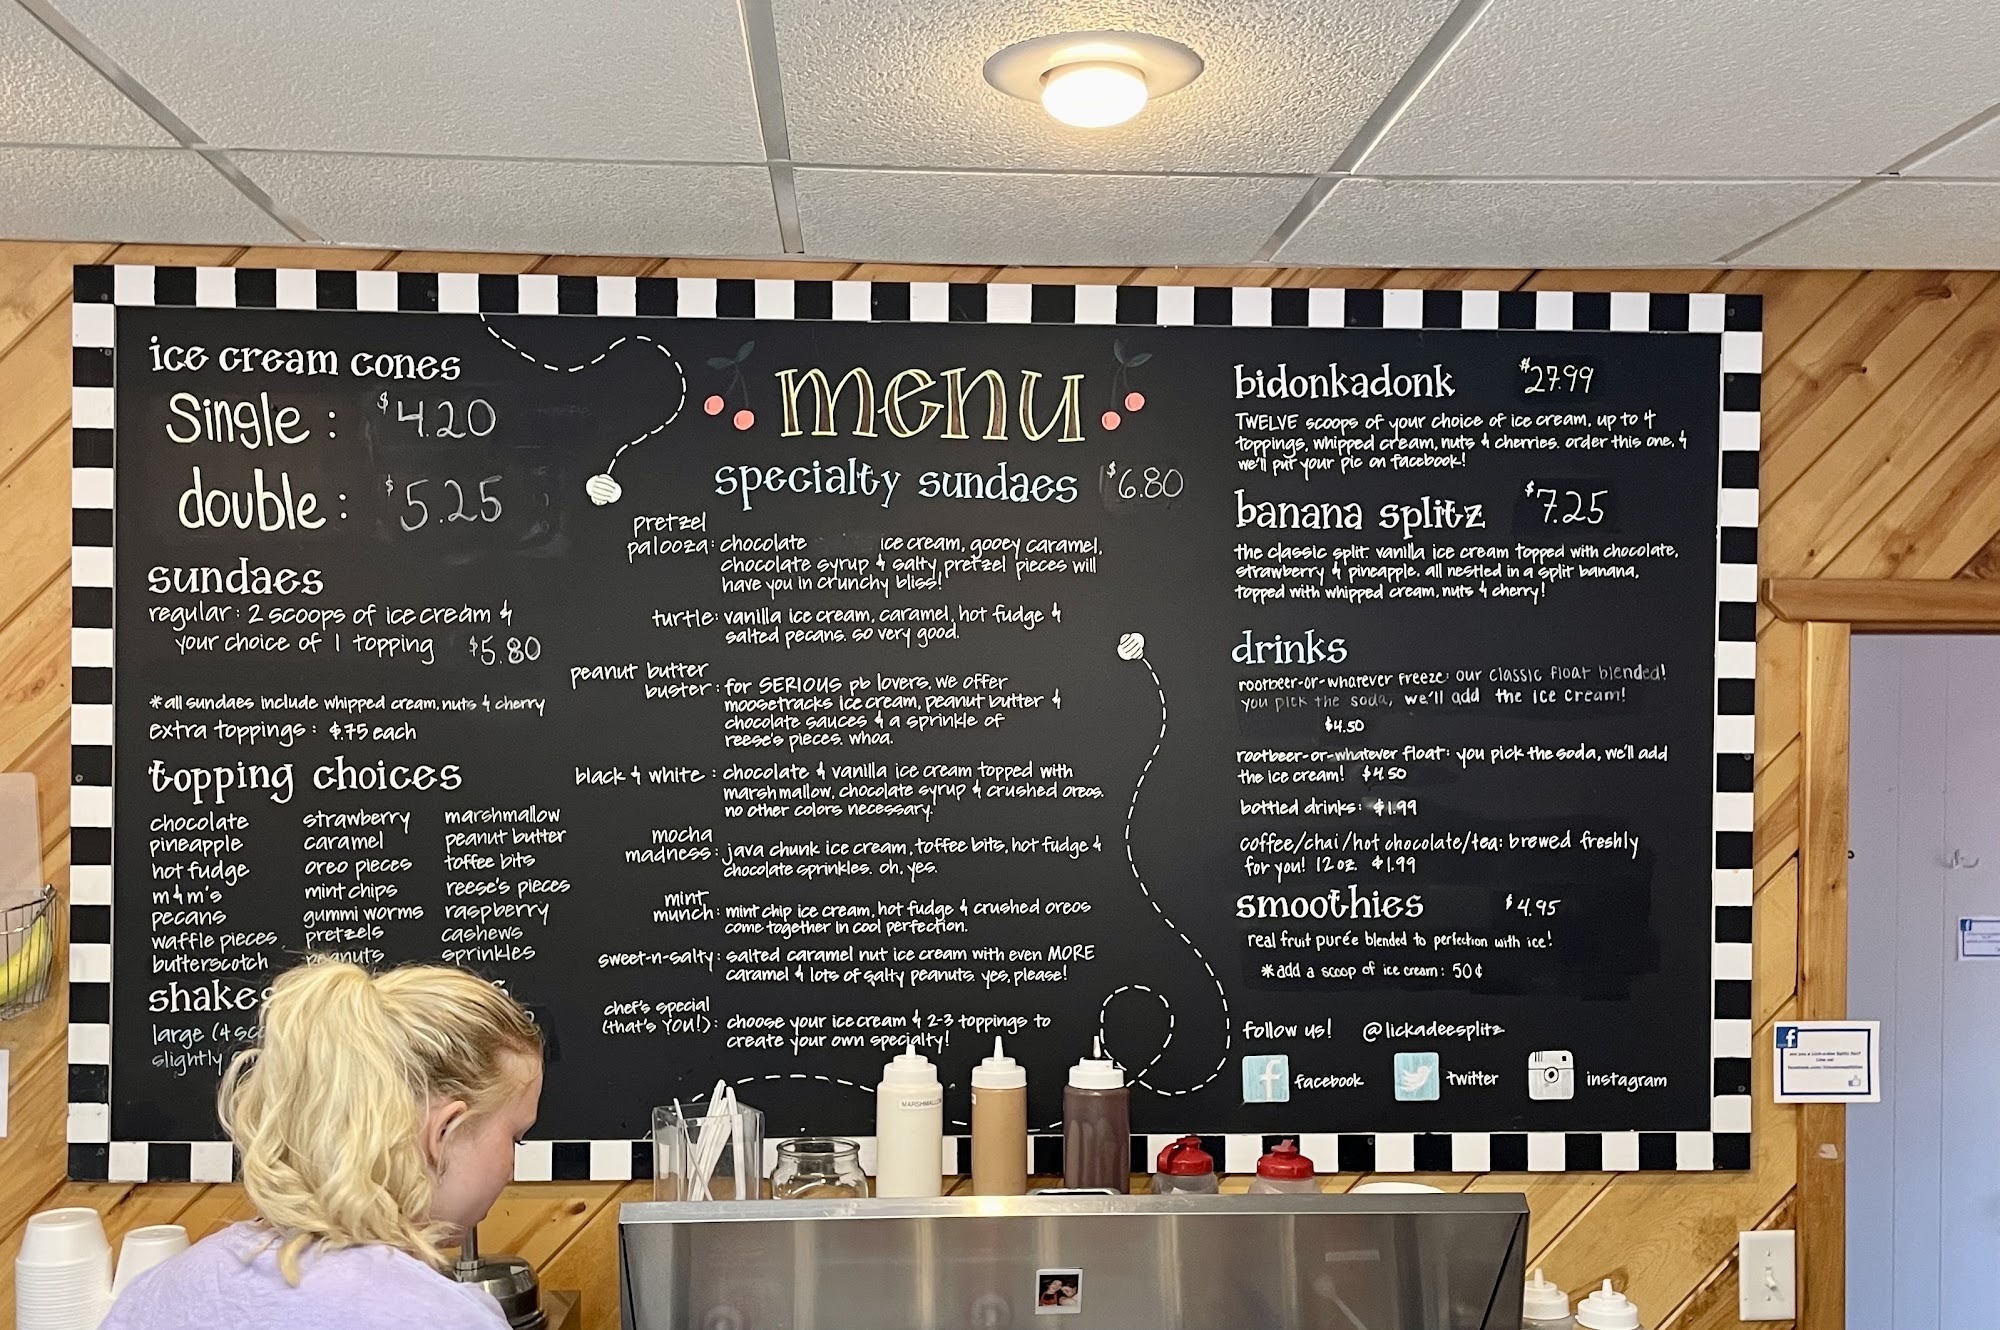 ice cream cones
Single: $4.20
double: $5.25
sundaes
regular: 2 scoops of ice cream &
your choice of 1 topping $5.80
*all sundaes include whipped cream, nuts & cherry
extra toppings: $.75 each
topping choices
chocolate strawberry marshmallow
pineapple caramel peanut butter
hot fudge oreo pieces toffee bits
m&m's mint chips reese's pieces
pecans gummi worms raspberry
waffle pieces pretzels cashews
butterscotch peanuts sprinkles
shakes
large (4
slightly
menu
specialty sundaes $6.80
pretzel
palooza: chocolate ice cream, gooey caramel,
chocolate syrup & salty pretzel pieces will
have you in crunchy bliss!
turtle: vanilla ice cream, caramel, hot fudge &
salted pecans. so very good.
peanut butter
buster: for SERIOUS pb lovers, we offer
moosetracks ice cream, peanut butter &
chocolate sauces & a sprinkle of
reese's pieces. whoa.
black & white: chocolate & vanilla ice cream topped with
marshmallow, chocolate syrup & crushed oreos.
no other colors necessary.
mocha
madness: java chunk ice cream, toffee bits, hot fudge &
chocolate sprinkles. oh, yes.
mint
munch: mint chip ice cream, hot fudge & crushed oreos
come together in cool perfection.
sweet-n-salty: salted caramel nut ice cream with even MORE
caramel & lots of salty peanuts. yes, please!
chef's special
(that's YOU!): choose your ice cream & 2-3 toppings to
create your own specialty!
bidonkadonk $27.99
TWELVE scoops of your choice of ice cream, up to 4
toppings, whipped cream, nuts & cherries. order this one, &
we'll put your pic on facebook!
banana splitz $7.25
the classic split. vanilla ice cream topped with chocolate,
strawberry & pineapple. all nestled in a split banana,
topped with whipped cream, nuts & cherry!
drinks
rootbeer-or-whatever freeze: our classic float blended!
you pick the soda, we'll add the ice cream!
$4.50
rootbeer-or-whatever float: you pick the soda, we'll add
the ice cream! $4.50
bottled drinks: $1.99
coffee/chai/hot chocolate/tea: brewed freshly
for you! 12 oz. $1.99
smoothies $4.95
real fruit purée blended to perfection with ice!
*add a scoop of ice cream: 50¢
follow us! @lickadeesplitz
facebook twitter instagram
MARSHMALLOW